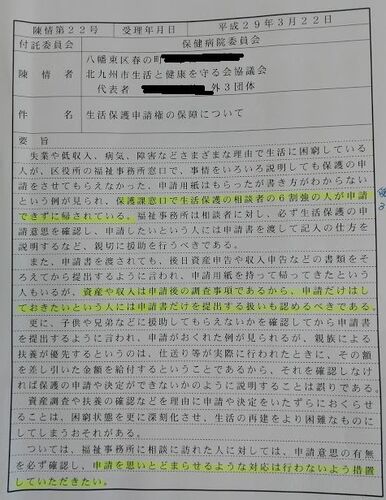 陳情第22号 受理年月日 平成29年3月22日
付託委員会 保健病院委員会
八幡東区春の町
陳情者 北九州市生活と健康を守る会協議会
代表者 外3団体
件名 生活保護申請権の保障について
要旨
失業や低収入、病気、障害などさまざまな理由で生活に困窮している
人が、区役所の福祉事務所窓口で、事情をいろいろ説明しても保護の申
請をさせてもらえなかった、申請用紙はもらったが書き方がわからない
という例が見られ、保護課窓口で生活保護の相談者の6割強の人が申請
できずに帰されている。福祉事務所は相談者に対し、必ず生活保護の申
請意思を確認し、申請したいという人には申請書を渡して記入の仕方を
説明するなど、親切に援助を行うべきである。
また、申請書を渡されても、後日資産申告や収入申告などの書類をそ
ろえてから提出するように言われ、申請用紙を持って帰ってきたという
人もいるが、資産や収入は申請後の調査事項であるから、申請だけはし
ておきたいという人には申請書だけを提出する扱いも認めるべきである。
更に、子供や兄弟などに援助してもらえないかを確認してから申請書
を提出するように言われ、申請がおくれた例が見られるが、親族による
扶養が優先するというのは、仕送り等が実際に行われたときに、その額
を差し引いた金額を給付するということであるから、それを確認しなけ
れば保護の申請や決定ができないかのように説明することは誤りである。
資産調査や扶養の確認などを理由に申請や決定をいたずらにおくらせ
ることは、困窮状態を更に深刻化させ、生活の再建をより困難なものに
してしまうおそれがある。
ついては、福祉事務所に相談に訪れた人に対しては、申請意思の有無
を必ず確認し、申請を思いとどまらせるような対応は行わないよう措置
していただきたい。